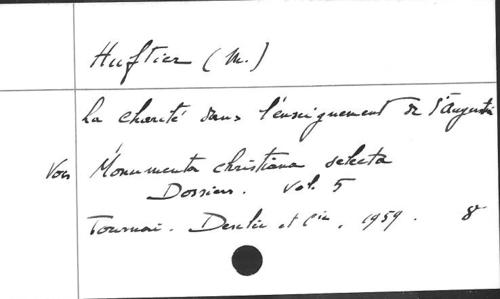 Huftier (M.)
La charité dans l'enseignement de St Augustin
Voir Monumenta christiana selecta
Dossiers. Vol. 5
Tournai. Desclée et Cie, 1959. 8°